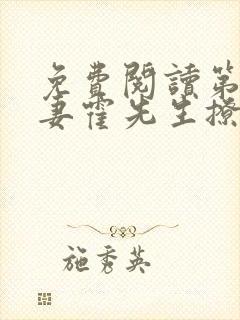 免費閱讀第
妻霍先生撩
施秀英